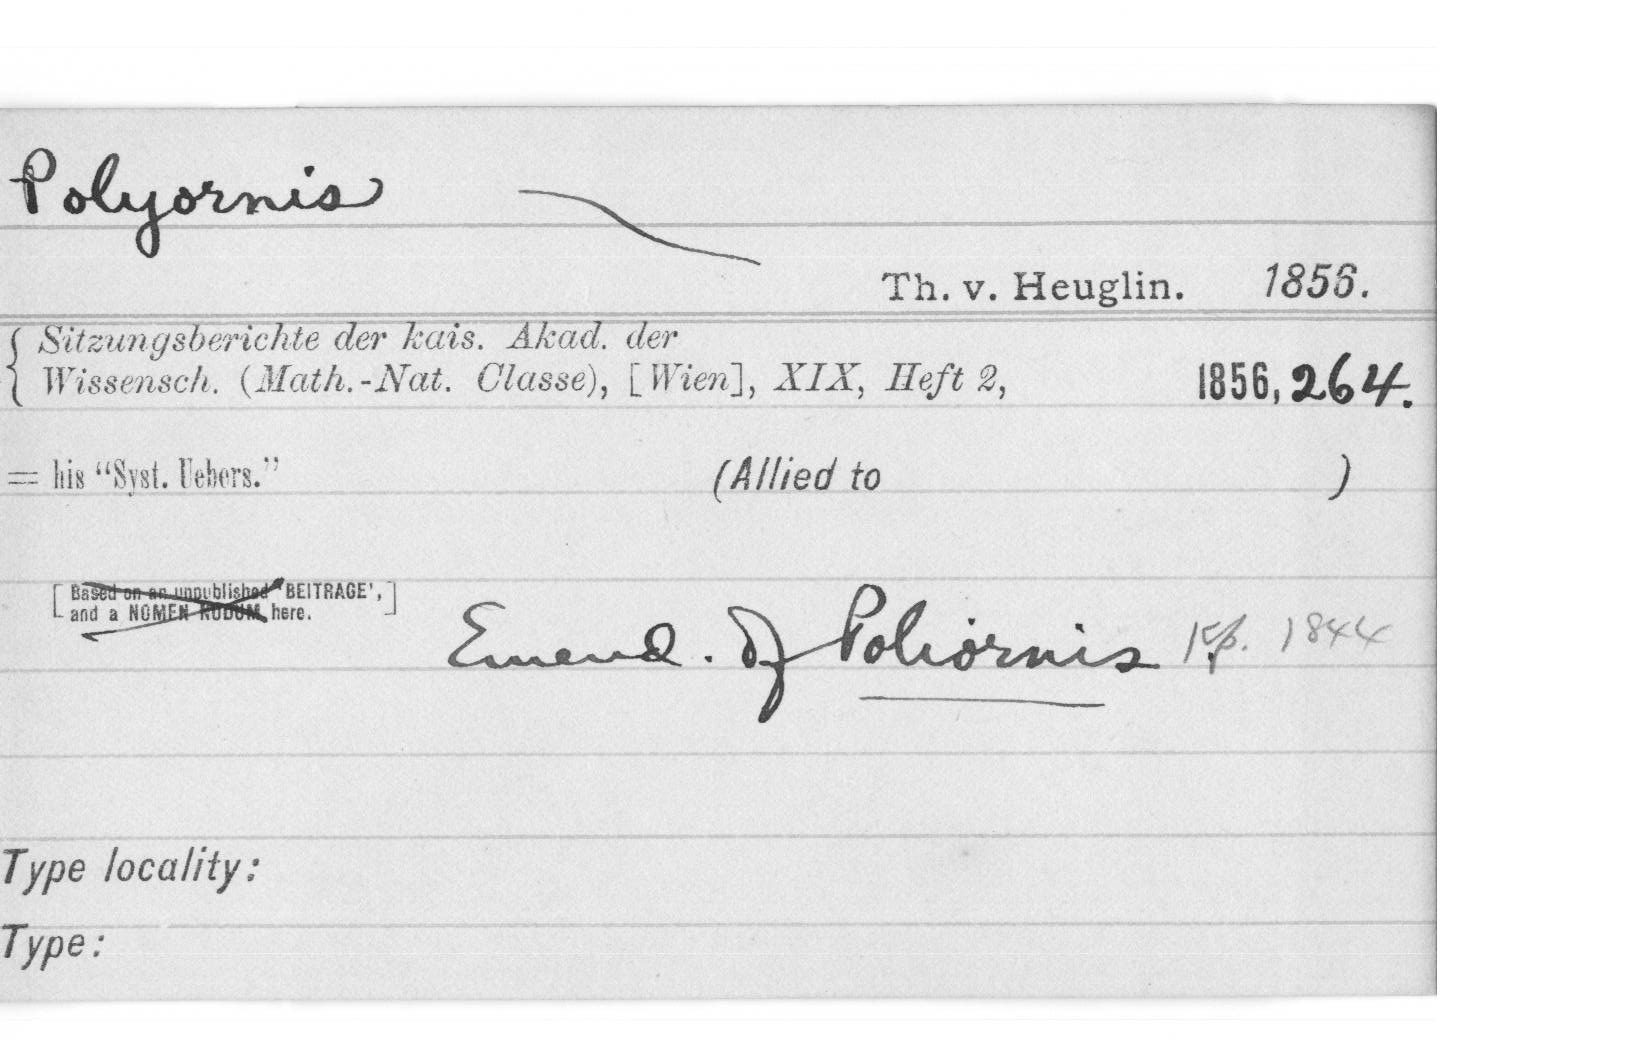 Polyornis
Th. v. Heuglin. 1856.
Sitzungsberichte der kais. Akad. der
Wissensch. (Math.-Nat. Classe), [Wien], XIX, Heft 2, 1856, 264.
= his "Syst. Uebers." (Allied to )
[Based on an unpublished 'BEITRAGE',
and a NOMEN NUDUM here.]
Emend. of Poliornis Kp. 1844
Type locality:
Type: